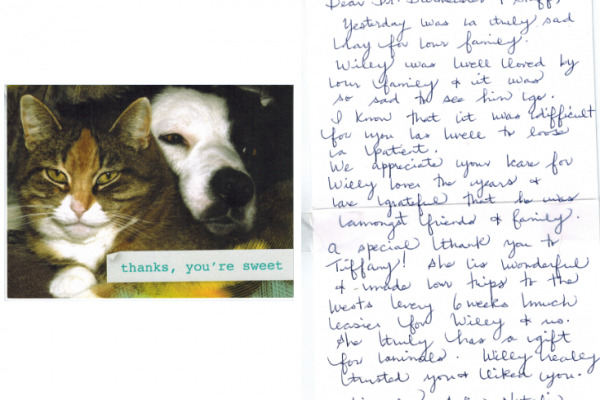 thanks, you're sweet
Dear Dr.
Yesterday was a truly sad
day for our family.
Willy was well loved by
our family & it was
so sad to see him go.
I know that it was difficult
for you as well to loose
a patient.
We appreciate your care for
Willy over the years &
are grateful that he was
amongst friends & family.
A special thank you to
Tiffany! She is wonderful
& made our trips to the
vets every 6 weeks much
easier for Willy & us.
She truly has a gift
for animals. Willy really
trusted you & liked you.